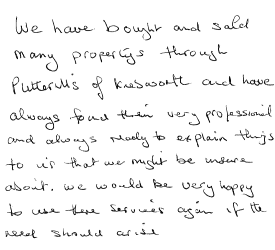 We have bought and sold
many propertys through
Putterills of Knebworth and have
always found them very professional
and always ready to explain things
to us that we might be unsure
about. we would be very happy
to use there services again if the
need should arise